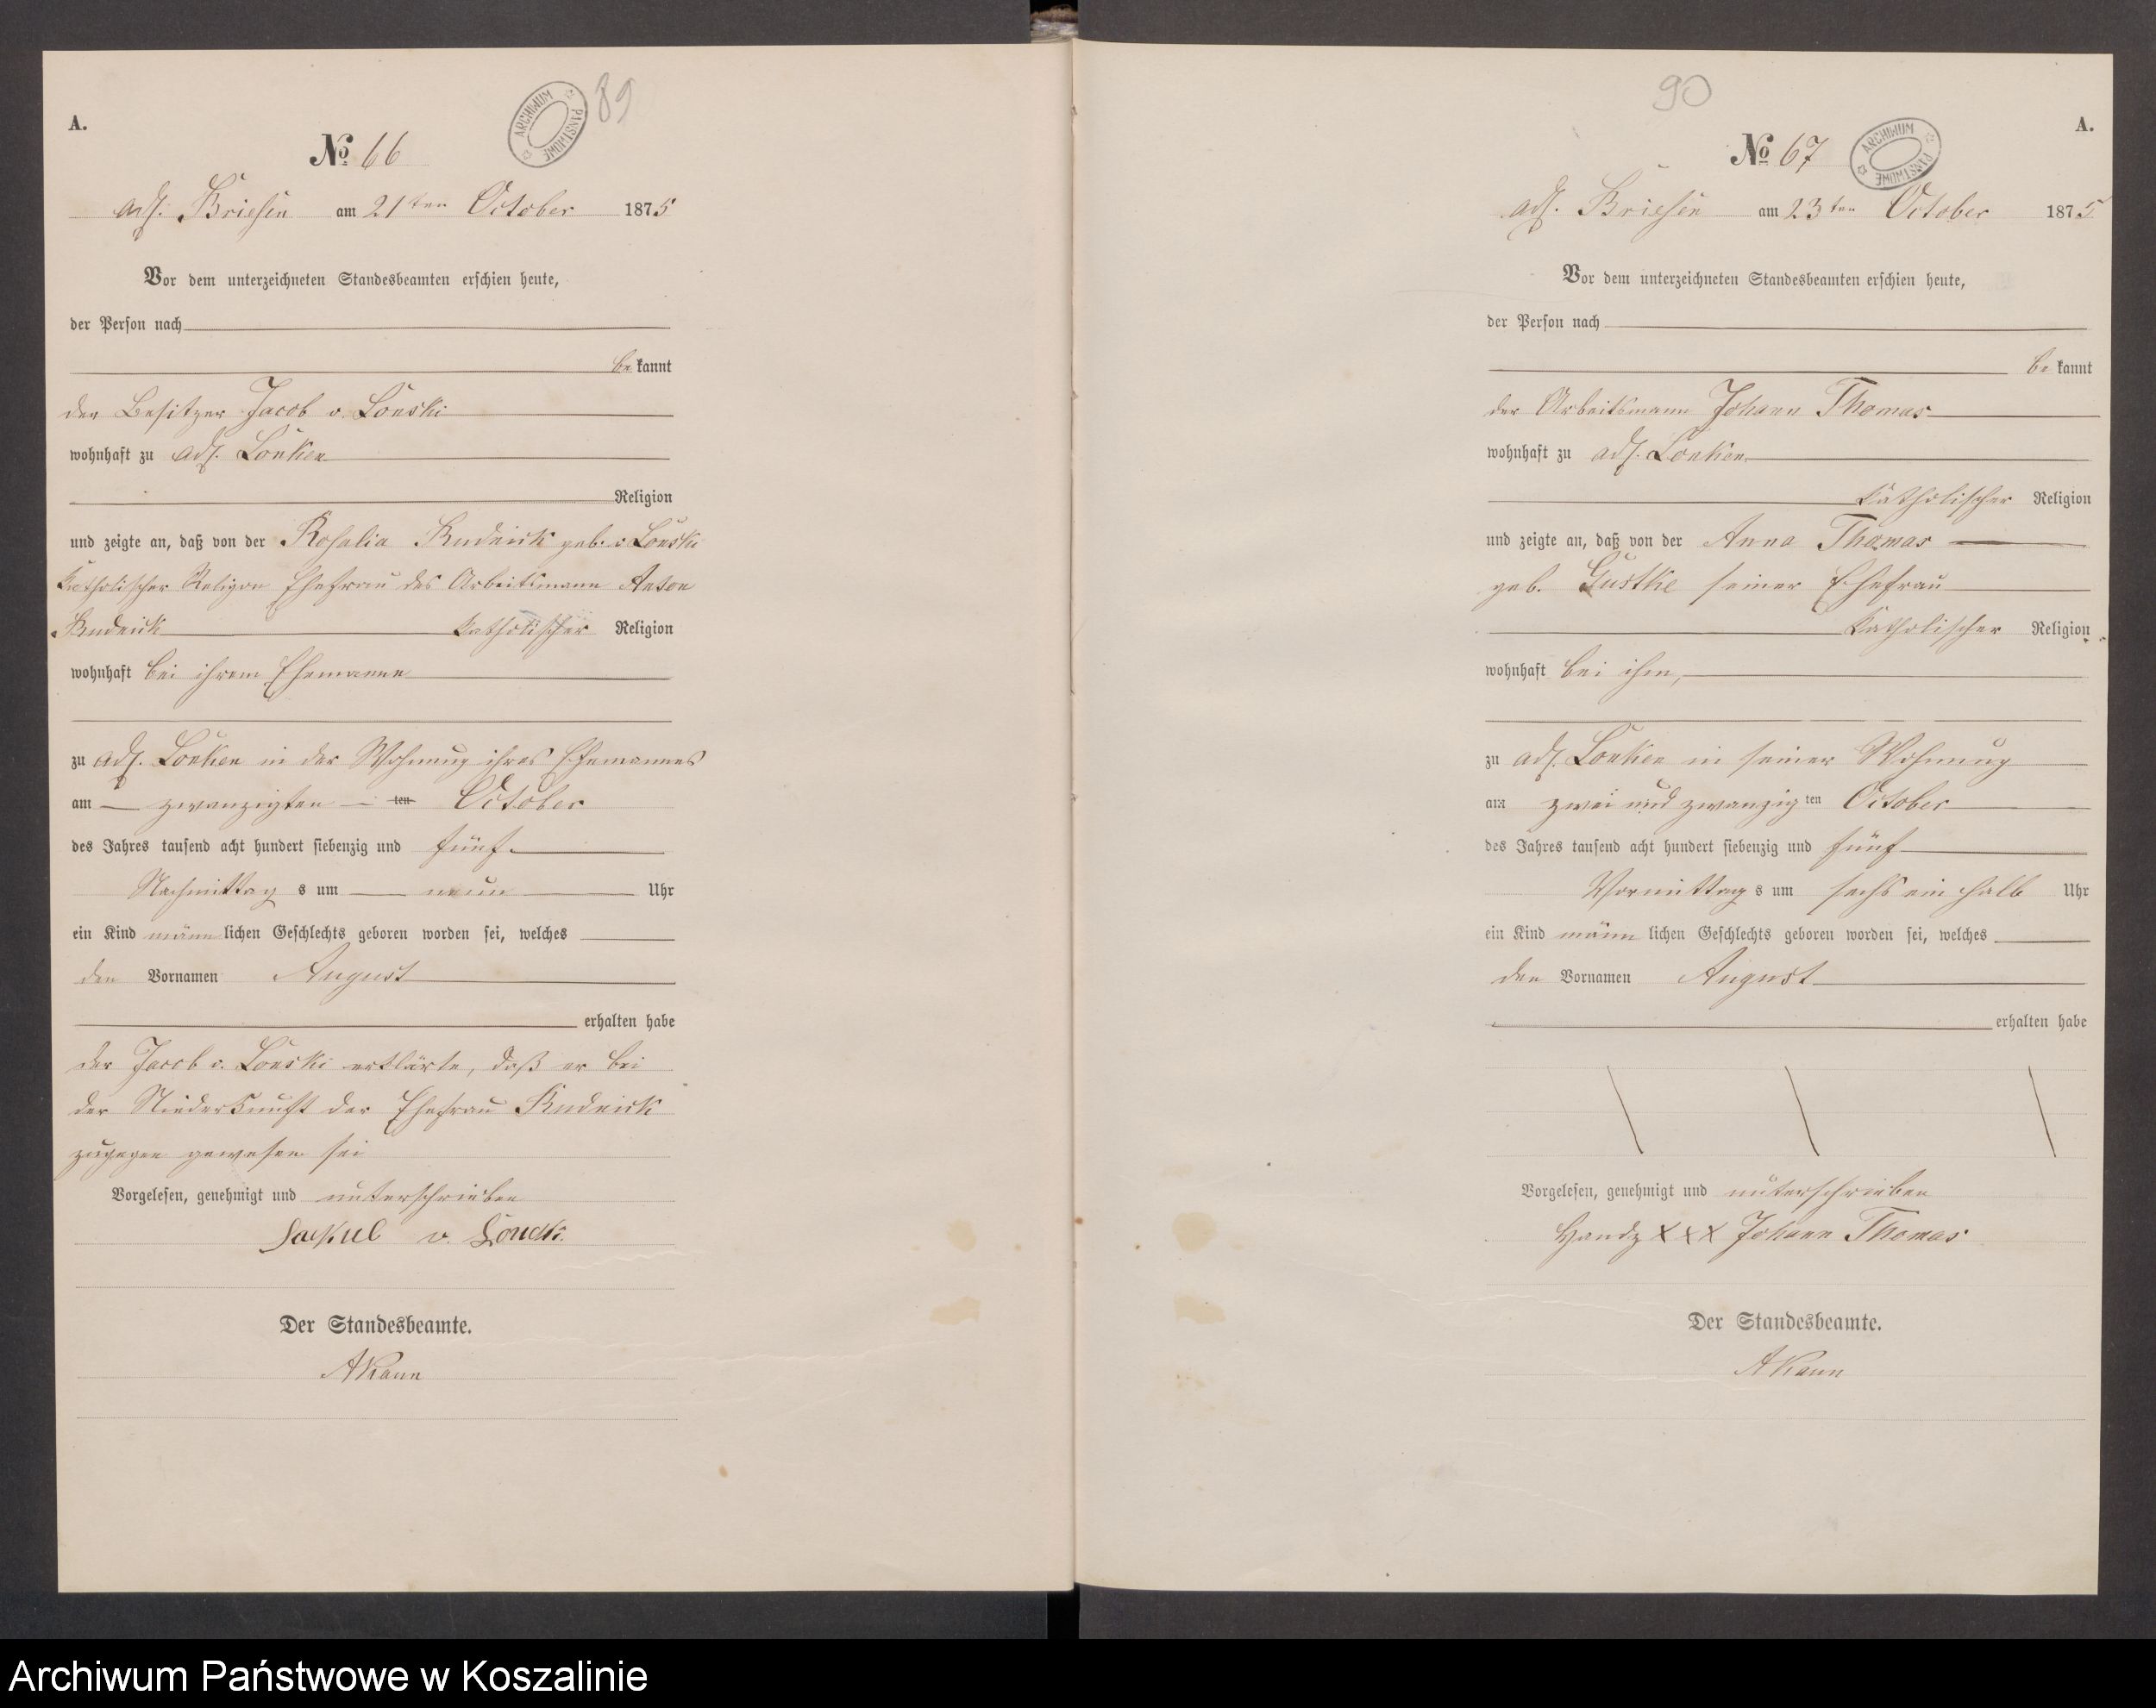 89
A.
ARCHIWUM PAŃSTWOWE
№ 66
adl. Briesen am 21ten October 1875
Vor dem unterzeichneten Standesbeamten erschien heute,
der Person nach
be kannt
der Besitzer Jacob v. Lonski
wohnhaft zu adl. Lonken
Religion
und zeigte an, daß von der Rosalia Rudnick geb. v Lonski
katholischer Religion Ehefrau des Arbeitsmann Anton
Rudnick katholischer Religion
wohnhaft bei ihrem Ehemanne
zu adl. Lonken in der Wohnung ihres Ehemannes
am zwanzigten ten October
des Jahres tausend acht hundert siebenzig und fünf
Nachmittag s um neun Uhr
ein Kind männ lichen Geschlechts geboren worden sei, welches
den Vornamen August
erhalten habe
der Jacob v. Lonski erklärte, daß er bei
der Niederkunft der Ehefrau Rudnick
zugegen gewesen sei
Vorgelesen, genehmigt und unterschrieben
v. Lonski
Der Standesbeamte.
AKann
90
A.
№ 67
ARCHIWUM PAŃSTWOWE
adl. Briesen am 23ten October 1875
Vor dem unterzeichneten Standesbeamten erschien heute,
der Person nach
be kannt
der Arbeitsmann Johann Thomas
wohnhaft zu adl. Lonken
katholischer Religion
und zeigte an, daß von der Anna Thomas
geb. Gustke seiner Ehefrau
katholischer Religion
wohnhaft bei ihm,
zu adl. Lonken in seiner Wohnung
am zwei und zwanzig ten October
des Jahres tausend acht hundert siebenzig und fünf
Vormittag s um sechs ein halb Uhr
ein Kind männ lichen Geschlechts geboren worden sei, welches
den Vornamen August
erhalten habe
Vorgelesen, genehmigt und unterschrieben
Handz XXX Johann Thomas
Der Standesbeamte.
AKann
Archiwum Państwowe w Koszalinie